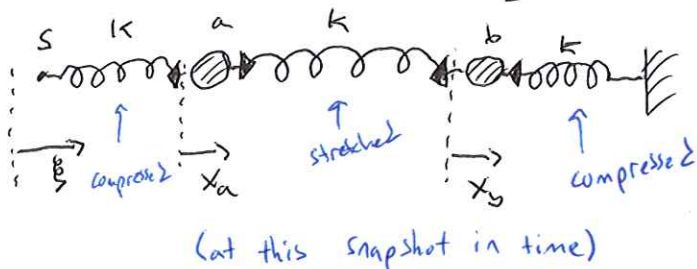 S K a K b K
ξ compressed xₐ stretched x_b compressed
(at this snapshot in time)